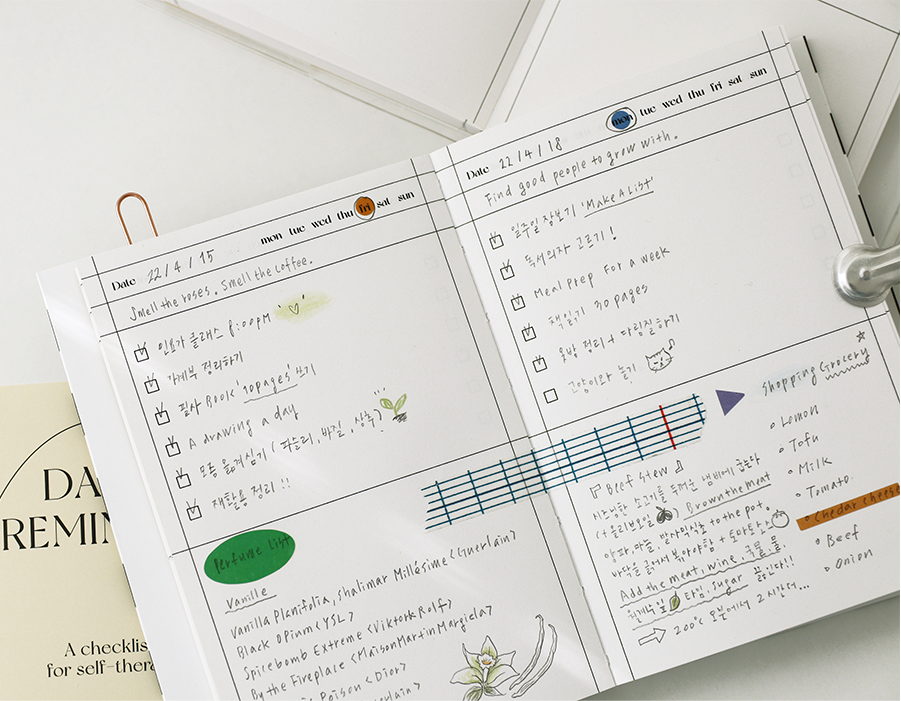 mon tue wed thu fri sat sun
Date 22/4/15
Smell the roses. Smell the coffee.
인요가 클래스 8:00PM
가계부 정리하기
필사 Book '10pages' 쓰기
A drawing a day
모종 옮겨심기 (파슬리, 바질, 상추?)
재활용 정리!!
Perfume List
Vanille
Vanilla Planifolia, Shalimar Millésime <Guerlain>
Black Opium <YSL>
Spicebomb Extreme <Viktor&Rolf>
By the Fireplace <Maison Martin Margiela>
Poison <Dior>
mon tue wed thu fri sat sun
Date 22/4/18
Find good people to grow with.
일주일 장보기 'Make A List'
독서의자 고르기!
Meal prep for a week
책읽기 30 pages
옷방 정리 + 다림질하기
고양이와 놀기
Shopping Grocery
Lemon
Tofu
Milk
Tomato
Chedar cheese
Beef
Onion
Beef stew
시즈닝한 소고기를 두꺼운 냄비에 굽는다
(+올리브오일) Brown the meat
양파, 마늘, 반자믹식초 to the pot.
바닥을 긁어서 볶아야함 + 토마토소스
Add the meat, wine, 국물, 물
월계수잎 타임, sugar 끓인다!!
200℃ 오븐에서 2시간더...
DA
REMIN
A checklis
for self-thera